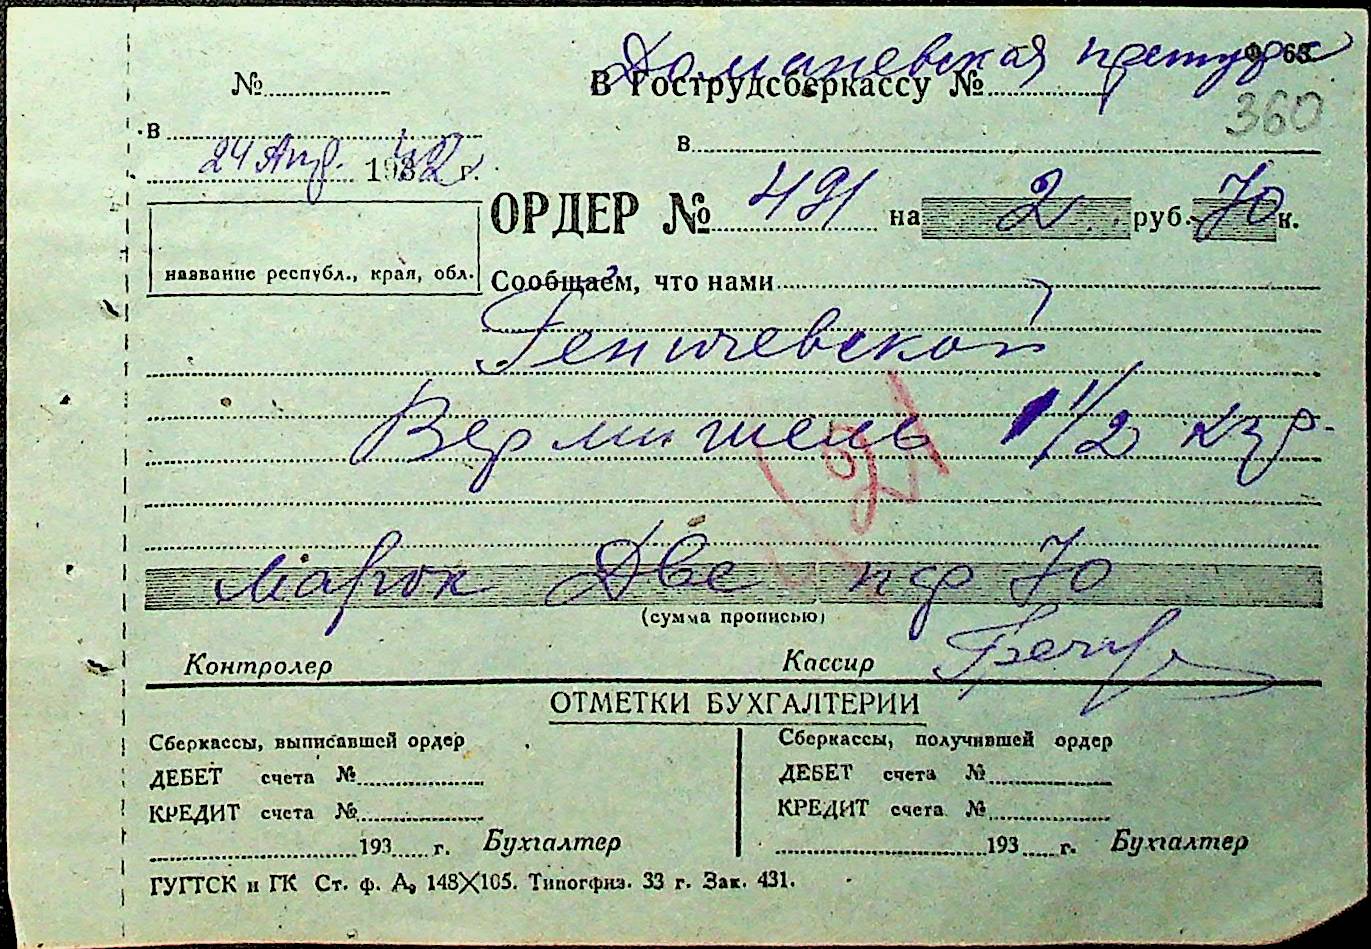 Доманевская претура
Ф. 63
№
В Гострудсберкассу №
360
в
в
24 Апр. 1942 г.
ОРДЕР № 491 на 2 руб. 70 к.
название республ., края, обл.
Сообщаем, что нами
Геничевской
Вермишель 1 1/2 кгр.
марок Две пф 70
(сумма прописью)
Контролер
Кассир
ОТМЕТКИ БУХГАЛТЕРИИ
Сберкассы, выписавшей ордер
Сберкассы, получившей ордер
ДЕБЕТ счета №
ДЕБЕТ счета №
КРЕДИТ счета №
КРЕДИТ счета №
193 г. Бухгалтер
193 г. Бухгалтер
ГУГТСК и ГК Ст. ф. А, 148X105. Типогфиз. 33 г. Зак. 431.